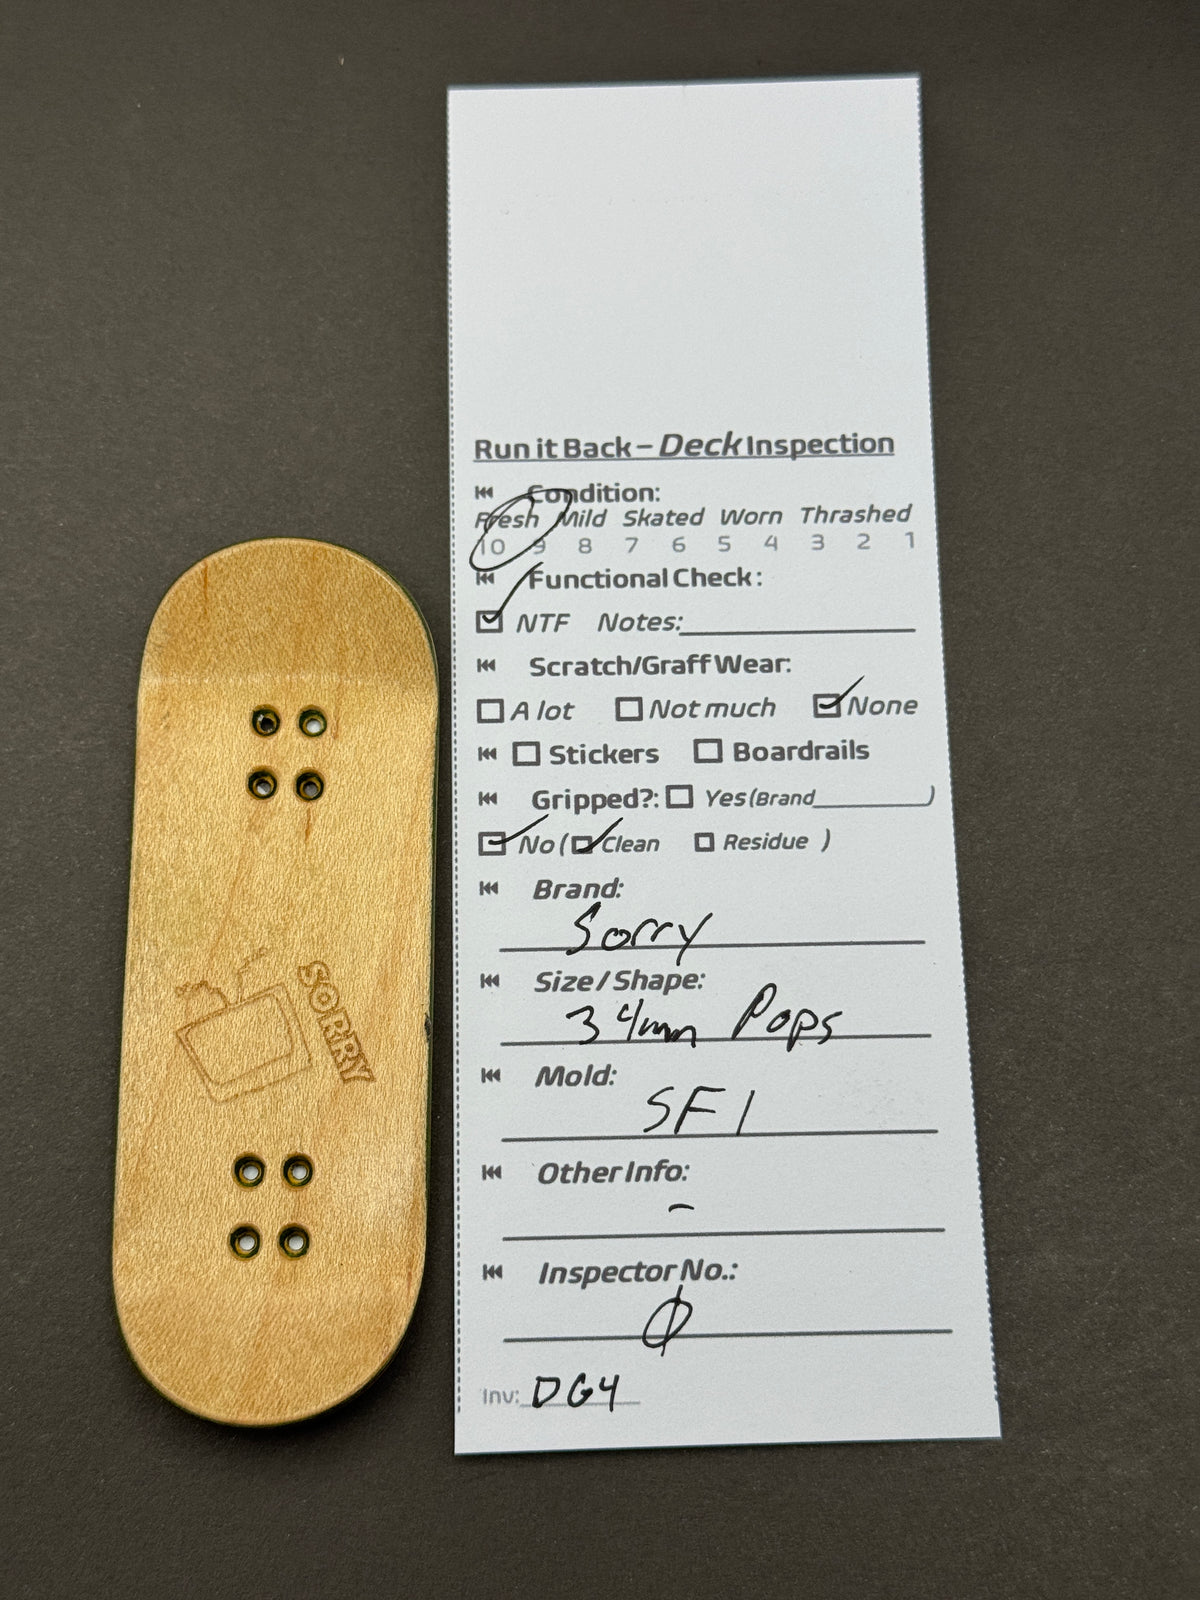 Run it Back – Deck Inspection
Condition:
Fresh Mild Skated Worn Thrashed
10 9 8 7 6 5 4 3 2 1
Functional Check:
NTF Notes:
Scratch/Graff Wear:
A lot Not much None
Stickers Boardrails
Gripped?: Yes (Brand )
No ( Clean Residue )
Brand:
Sorry
Size/Shape:
34mm Pops
Mold:
SF1
Other Info:
–
Inspector No.:
Ø
Inv: DG4
SORRY